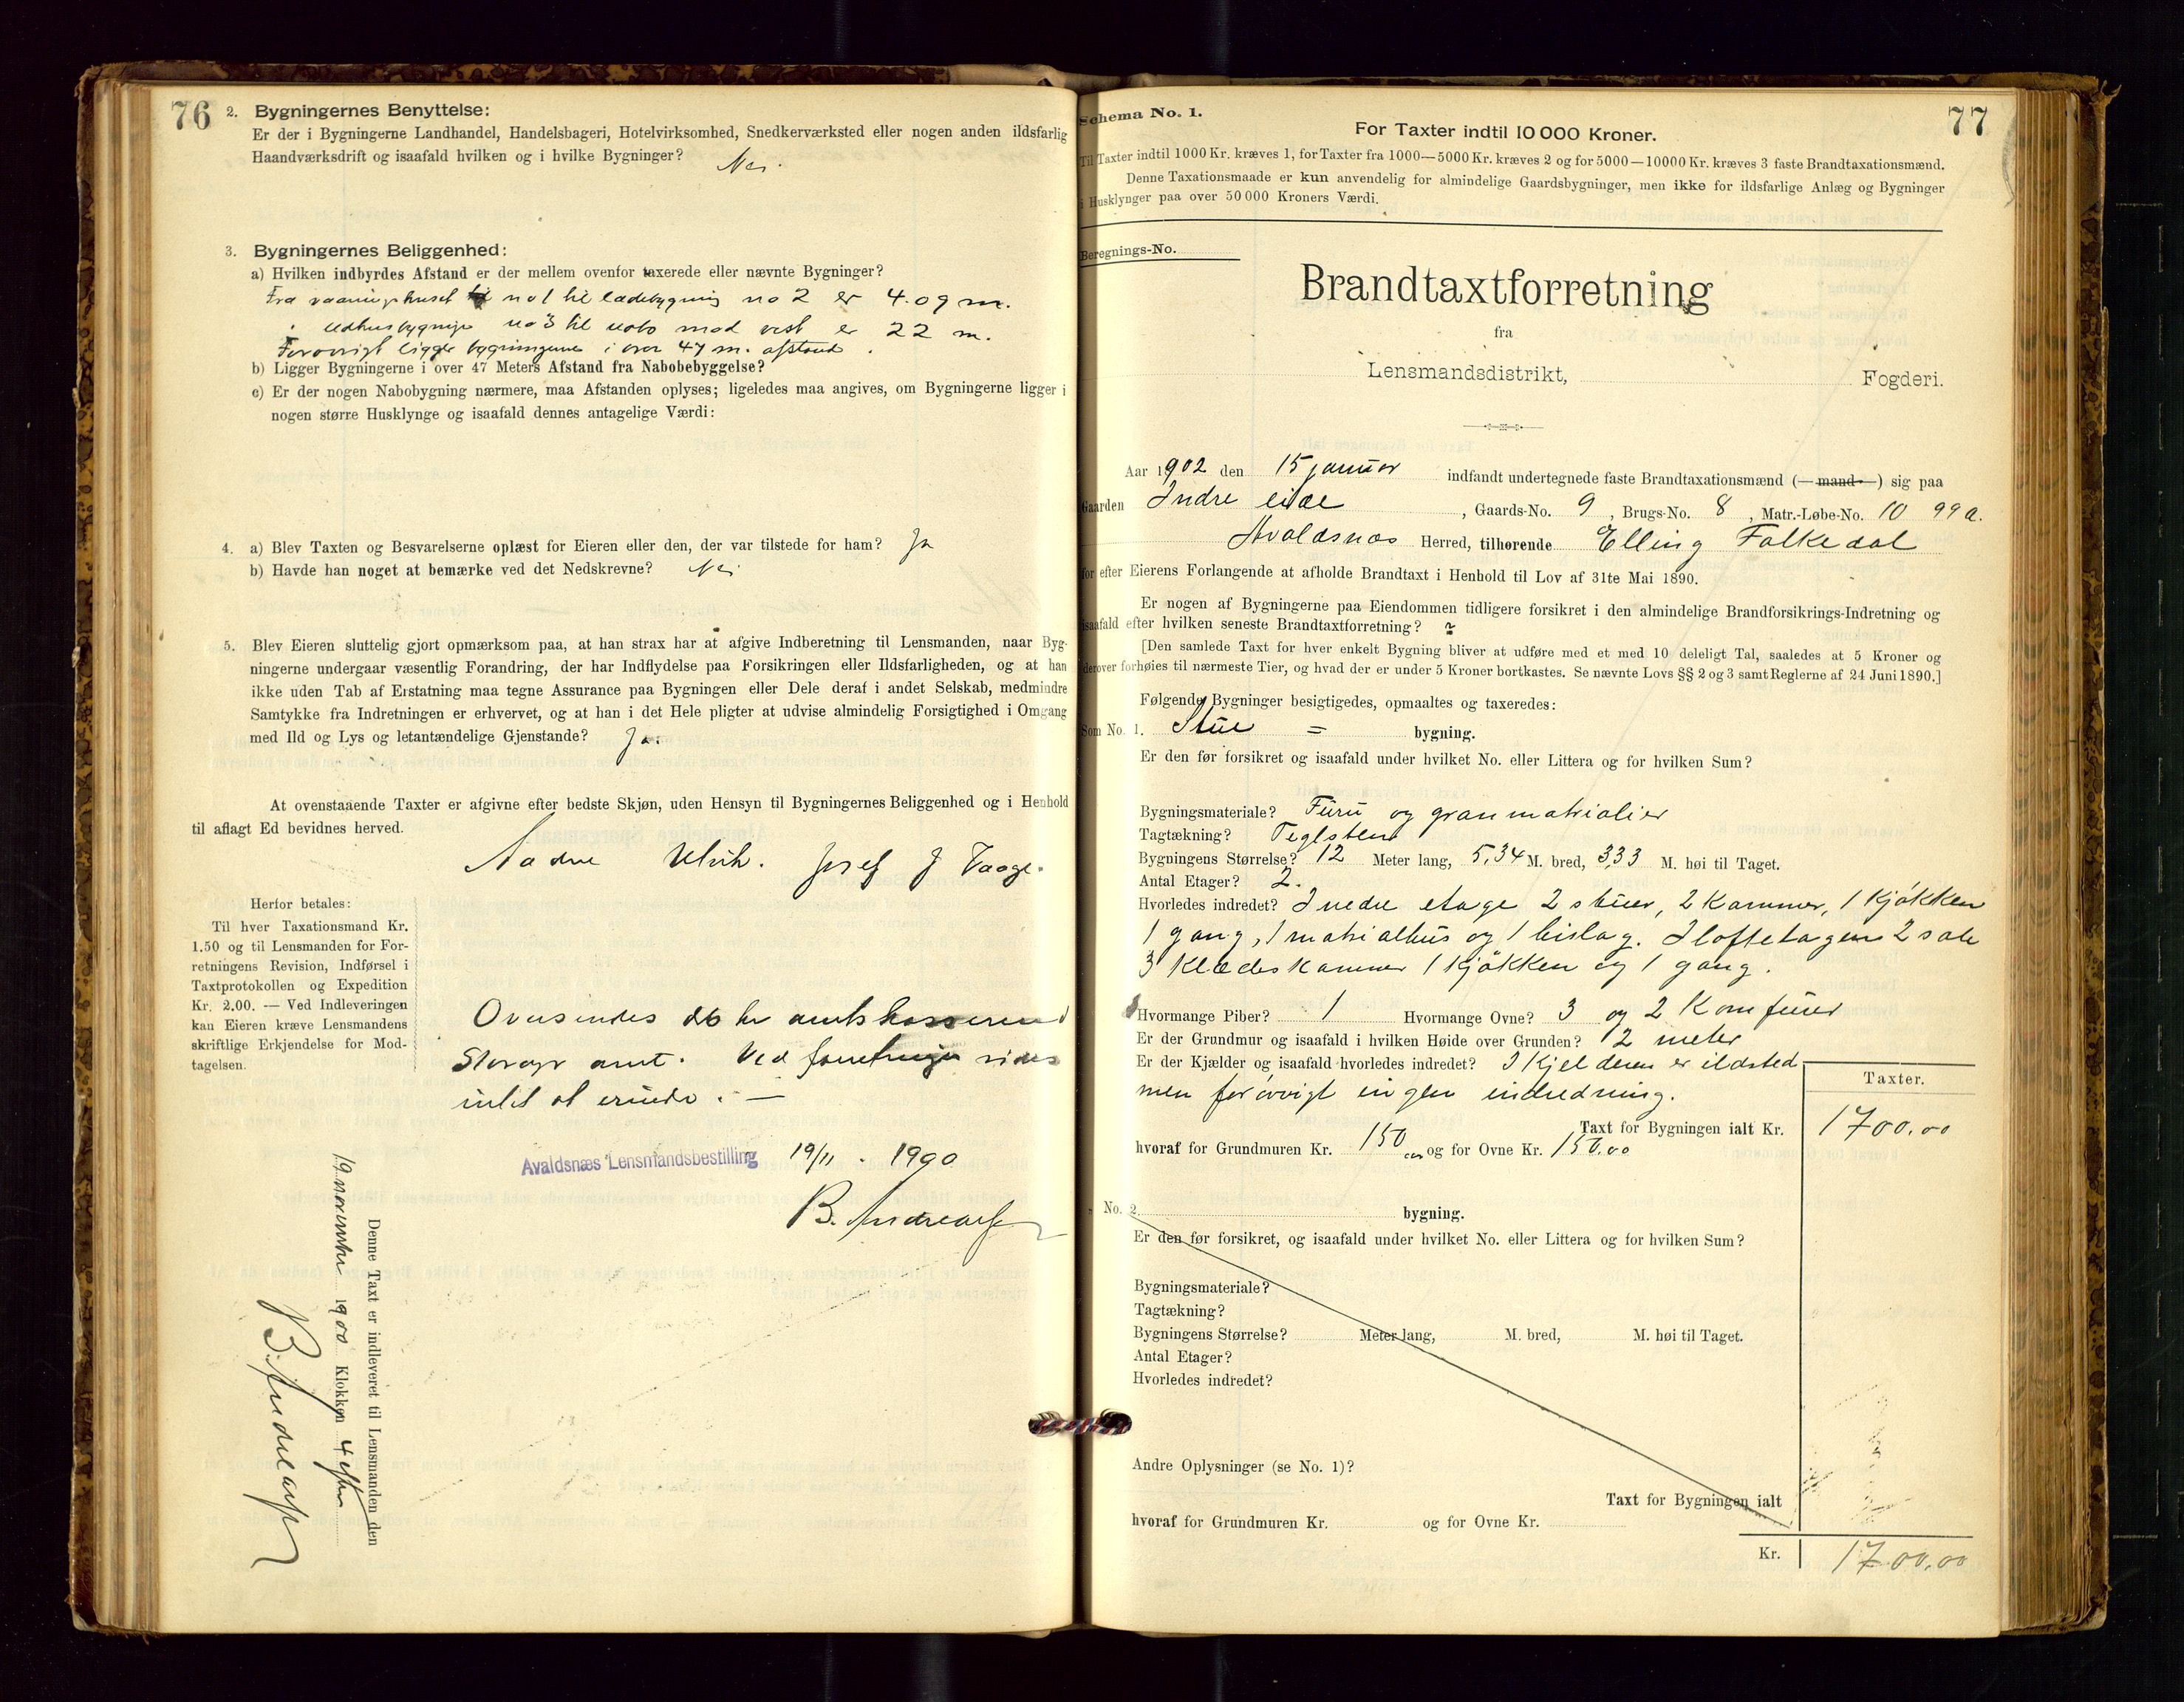 76
2. Bygningernes Benyttelse:
Er der i Bygningerne Landhandel, Handelsbageri, Hotelvirksomhed, Snedkerværksted eller nogen anden ildsfarlig
Haandværksdrift og isaafald hvilken og i hvilke Bygninger? Nei.
3. Bygningernes Beliggenhed:
a) Hvilken indbyrdes Afstand er der mellem ovenfor taxerede eller nævnte Bygninger?
Fra vaaningshuset no 1 til ladebygning no 2 er 4.09 m.
" Udhusbygnige no 3 til nabo mod vest er 22 m.
Forøvrigt ligger bygningerne i over 47 m. afstand.
b) Ligger Bygningerne i over 47 Meters Afstand fra Nabobebyggelse?
c) Er der nogen Nabobygning nærmere, maa Afstanden oplyses; ligeledes maa angives, om Bygningerne ligger i
nogen større Husklynge og isaafald dennes antagelige Værdi:
4. a) Blev Taxten og Besvarelserne oplæst for Eieren eller den, der var tilstede for ham? Ja
b) Havde han noget at bemærke ved det Nedskrevne? Nei
5. Blev Eieren sluttelig gjort opmærksom paa, at han strax har at afgive Indberetning til Lensmanden, naar Byg-
ningerne undergaar væsentlig Forandring, der har Indflydelse paa Forsikringen eller Ildsfarligheden, og at han
ikke uden Tab af Erstatning maa tegne Assurance paa Bygningen eller Dele deraf i andet Selskab, medmindre
Samtykke fra Indretningen er erhvervet, og at han i det Hele pligter at udvise almindelig Forsigtighed i Omgang
med Ild og Lys og letantændelige Gjenstande? Ja.
At ovenstaaende Taxter er afgivne efter bedste Skjøn, uden Hensyn til Bygningernes Beliggenhed og i Henhold
til aflagt Ed bevidnes herved.
Josef J Vaage.
Herfor betales:
Til hver Taxationsmand Kr.
1.50 og til Lensmanden for For-
retningens Revision, Indførsel i
Taxtprotokollen og Expedition
Kr. 2.00. — Ved Indleveringen
kan Eieren kræve Lensmandens
skriftlige Erkjendelse for Mod-
tagelsen.
Oversendes hr amtskassereren i
Stavgr amt. Ved forretningen vides
intet at erindre. —
Avaldsnæs Lensmandsbestilling 19/11 - 1900
B. Andreasen
Denne Taxt er indleveret til Lensmanden den
19 november 1900 Klokken 4 efterm
B. Andreasen
77
Schema No. 1.
For Taxter indtil 10 000 Kroner.
Til Taxter indtil 1000 Kr. kræves 1, for Taxter fra 1000—5000 Kr. kræves 2 og for 5000—10000 Kr. kræves 3 faste Brandtaxationsmænd.
Denne Taxationsmaade er kun anvendelig for almindelige Gaardsbygninger, men ikke for ildsfarlige Anlæg og Bygninger
i Husklynger paa over 50 000 Kroners Værdi.
Beregnings-No.
Brandtaxtforretning
fra
Lensmandsdistrikt, Fogderi.
Aar 1902 den 15 januar indfandt undertegnede faste Brandtaxationsmænd (—mand—) sig paa
Gaarden Indre eide, Gaards-No. 9, Brugs-No. 8, Matr.-Løbe-No. 10 99a.
Avaldsnæs Herred, tilhørende Elling Falkedal
for efter Eierens Forlangende at afholde Brandtaxt i Henhold til Lov af 31te Mai 1890.
Er nogen af Bygningerne paa Eiendommen tidligere forsikret i den almindelige Brandforsikrings-Indretning og
isaafald efter hvilken seneste Brandtaxtforretning?
[Den samlede Taxt for hver enkelt Bygning bliver at udføre med et med 10 deleligt Tal, saaledes at 5 Kroner og
derover forhøies til nærmeste Tier, og hvad der er under 5 Kroner bortkastes. Se nævnte Lovs §§ 2 og 3 samt Reglerne af 24 Juni 1890.]
Følgende Bygninger besigtigedes, opmaaltes og taxeredes:
Som No. 1. Stue = bygning.
Er den før forsikret og isaafald under hvilket No. eller Littera og for hvilken Sum?
Bygningsmateriale? Furu og granmatrialier
Tagtækning? Teglsten
Bygningens Størrelse? 12 Meter lang, 5,34 M. bred, 3,33 M. høi til Taget.
Antal Etager? 2.
Hvorledes indredet? I nedre etage 2 stuer, 2 Kammer, 1 Kjøkken
1 gang, 1 matrialhus og 1 bislag. I loftetagen 2 sale
3 Klædeskammer 1 Kjøkken og 1 gang.
Hvormange Piber? 1 Hvormange Ovne? 3 og 2 Komfuier
Er der Grundmur og isaafald i hvilken Høide over Grunden? 12 meter
Er der Kjælder og isaafald hvorledes indredet? I Kjelderen er ildsted
men forøvrigt ingen indredning.
Taxter.
Taxt for Bygningen ialt Kr. 1700,00
hvoraf for Grundmuren Kr. 150,00 og for Ovne Kr. 150,00
" No. 2. bygning.
Er den før forsikret, og isaafald under hvilket No. eller Littera og for hvilken Sum?
Bygningsmateriale?
Tagtækning?
Bygningens Størrelse? Meter lang, M. bred, M. høi til Taget.
Antal Etager?
Hvorledes indredet?
Andre Oplysninger (se No. 1)?
Taxt for Bygningen ialt
hvoraf for Grundmuren Kr. og for Ovne Kr.
Kr. 1700,00